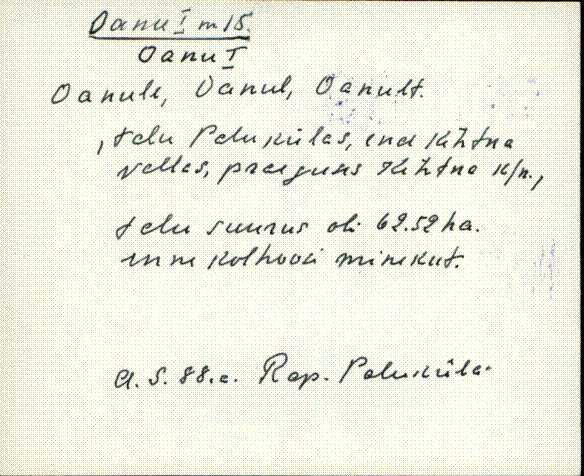 Oanu I m 15.
Oanu I
Oanule, Oanul, Oanult.
, talu Palukülas, end Kehtna
vallas, praegusis Kehtna k/n.,
talu suurus oli 62.52 ha.
enne kolhoosi minekut.
A. S. 88.a. Rap. Paluküla